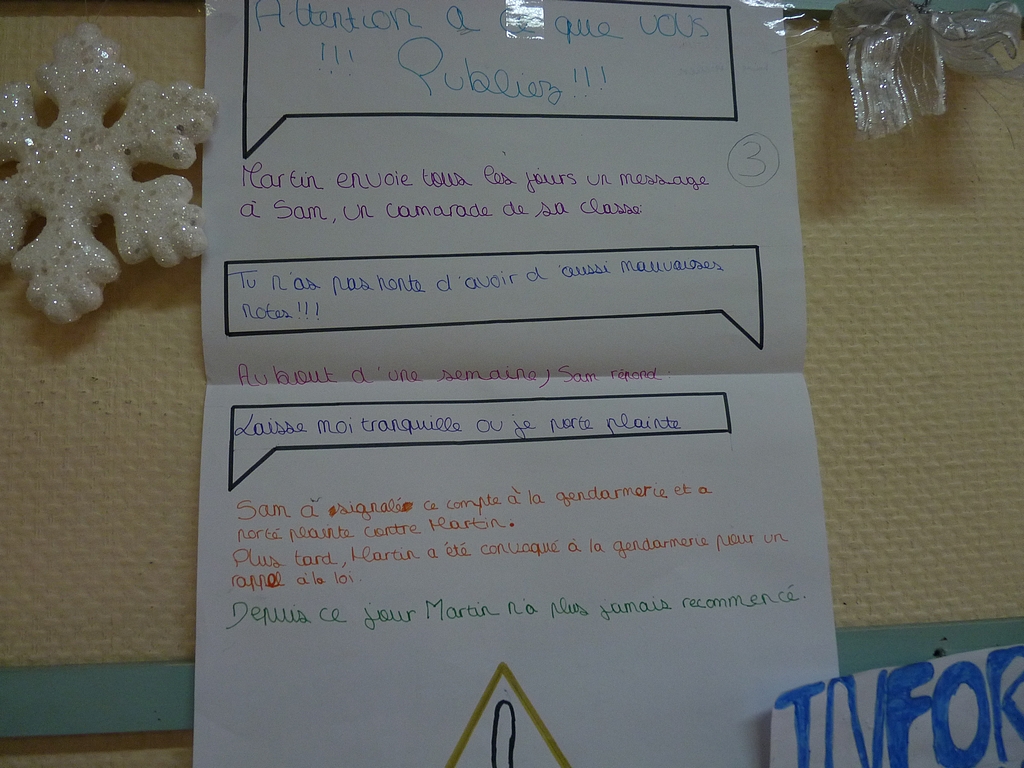 Attention à ce que vous
!!! Publiez!!!
3
Martin envoie tous les jours un message
à Sam, un camarade de sa classe:
Tu n'as pas honte d'avoir d'aussi mauvaises
notes!!!
Au bout d'une semaine, Sam répond:
Laisse moi tranquille ou je porte plainte
Sam à signalé ce compte à la gendarmerie et a
porté plainte contre Martin.
Plus tard, Martin a été convoqué à la gendarmerie pour un
rappel à la loi.
Depuis ce jour Martin n'a plus jamais recommencé.
INFOR